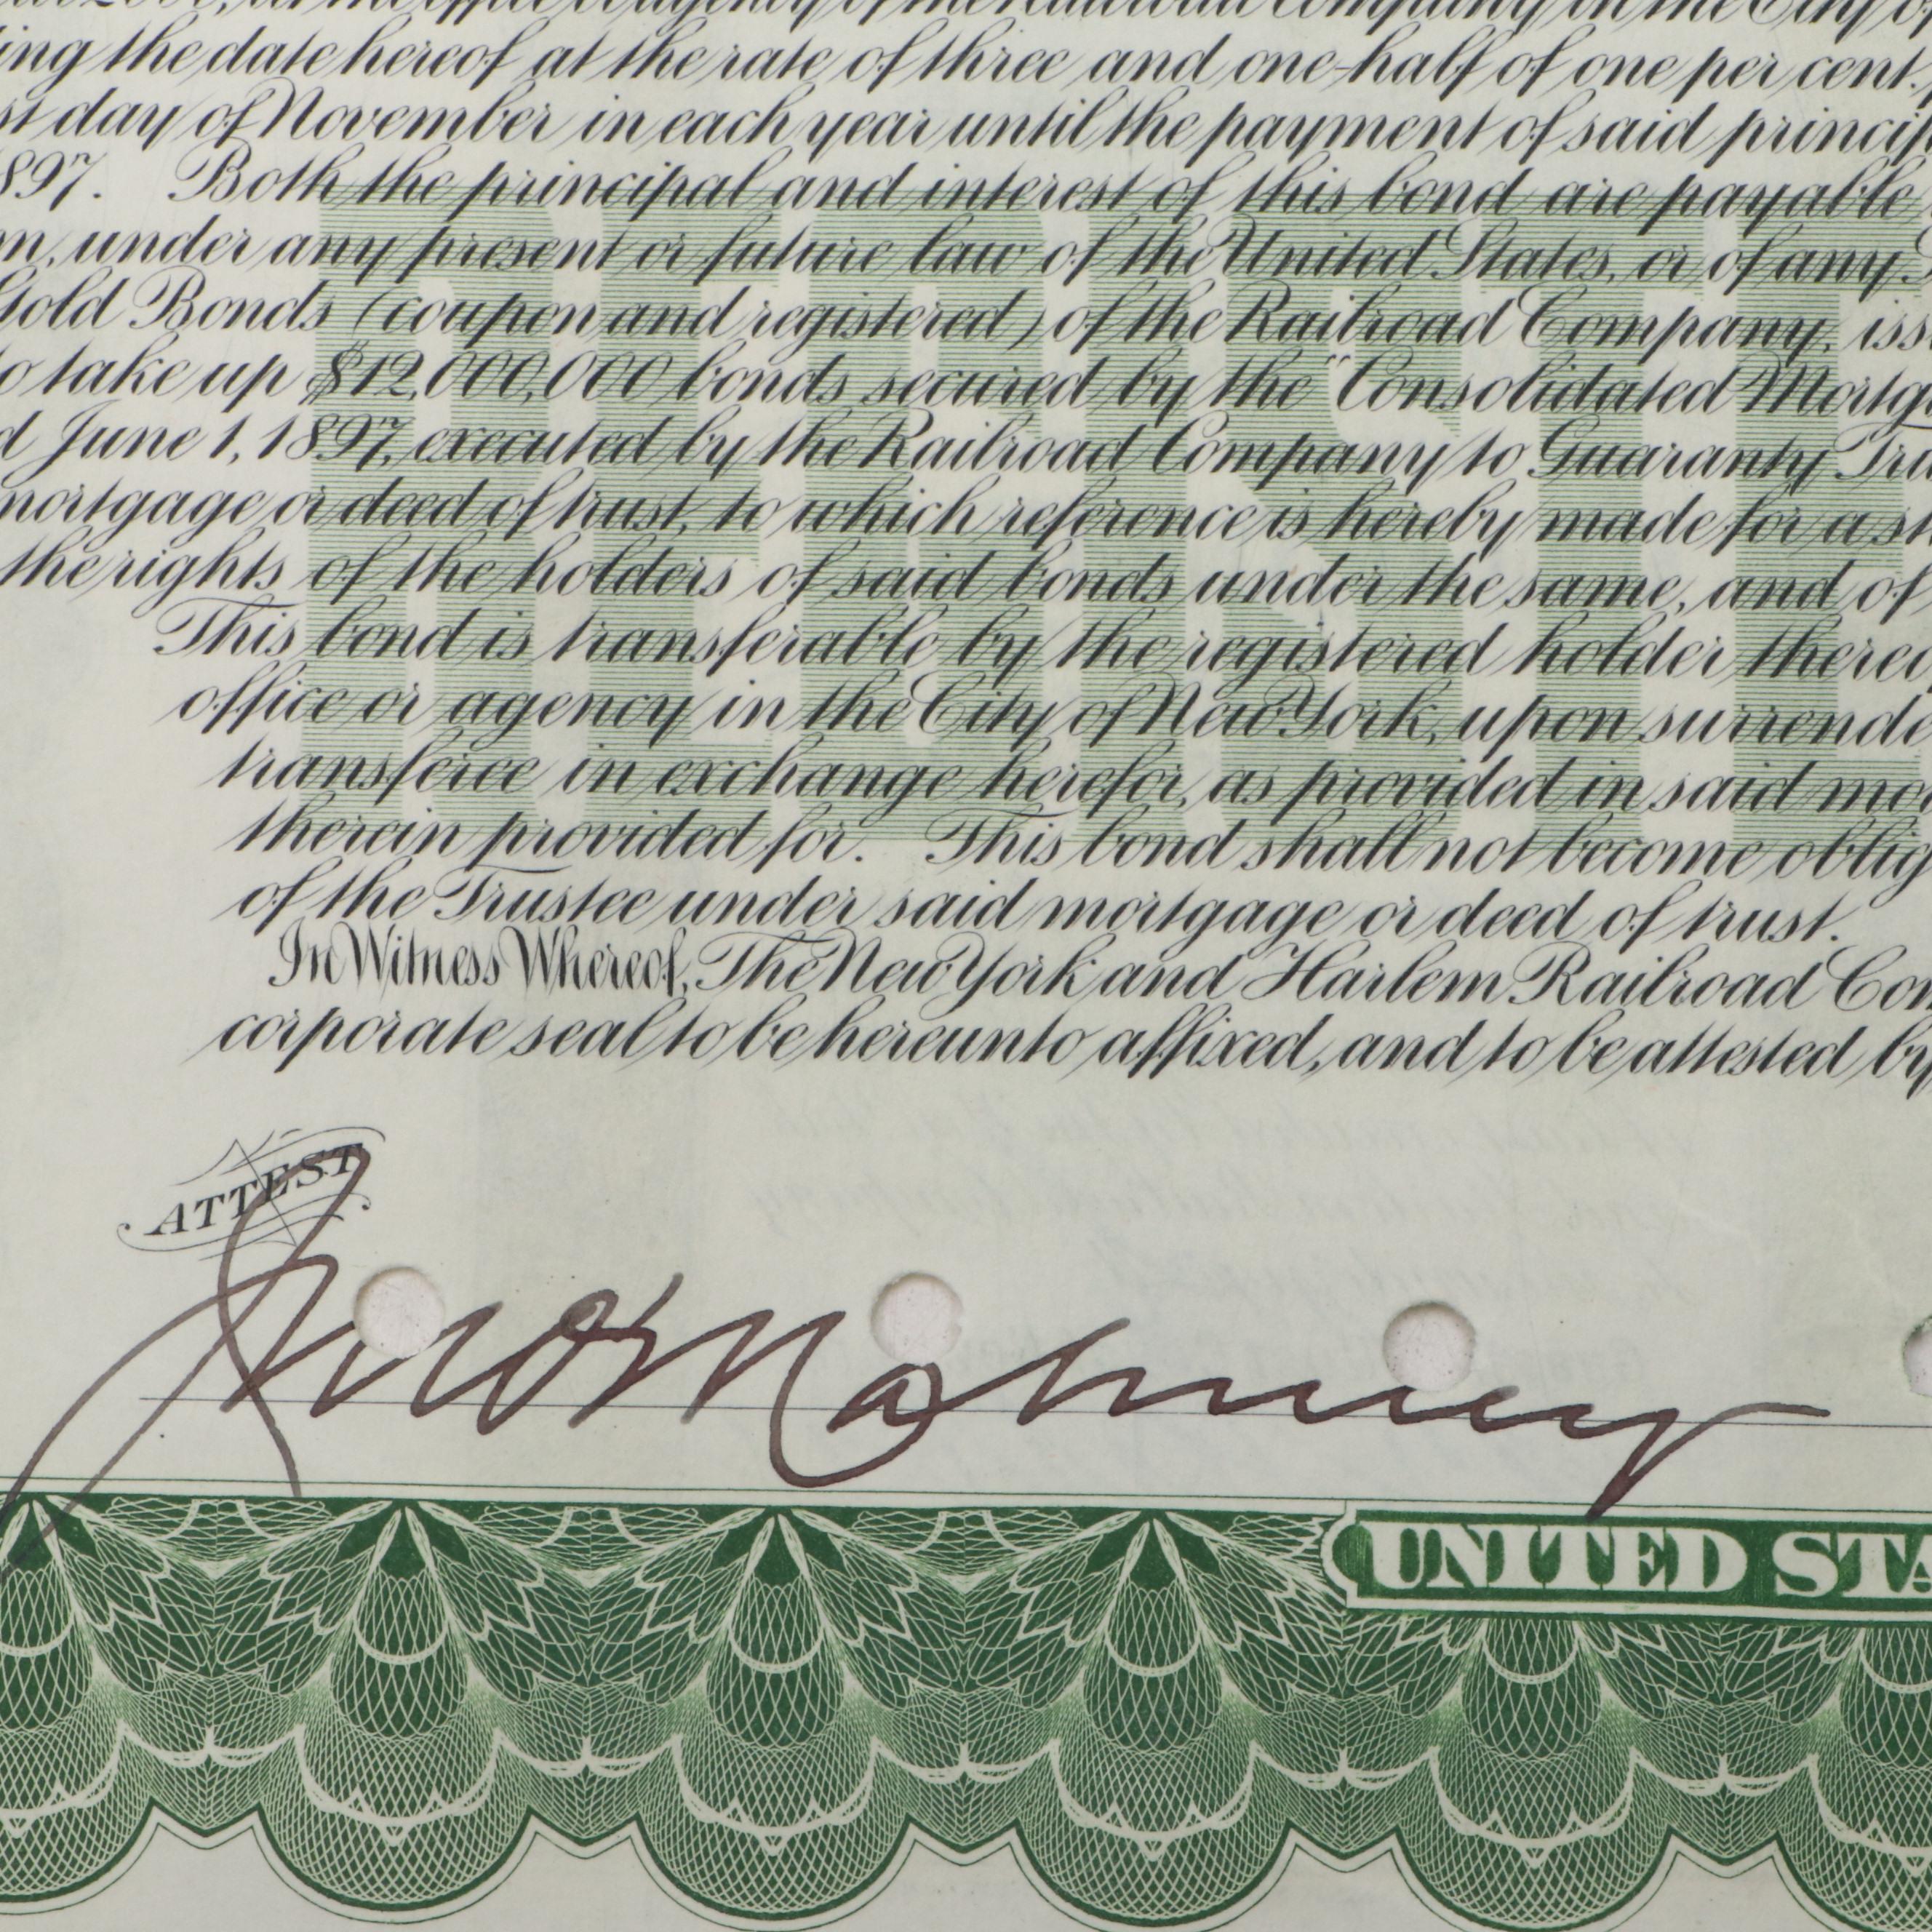 the office or agency of the Railroad Company in the City of
ing the date hereof at the rate of three and one-half of one per cent.
st day of November in each year until the payment of said princip
897. Both the principal and interest of this bond are payable
m, under any present or future law of the United States, or of any
Gold Bonds (coupon and registered) of the Railroad Company, iss
to take up $12,000,000 bonds secured by the "Consolidated Mortga
d June 1, 1897, executed by the Railroad Company to Guaranty Tru
mortgage or deed of trust, to which reference is hereby made for a st
the rights of the holders of said bonds under the same, and of
This bond is transferable by the registered holder thereo
office or agency in the City of New York, upon surrende
transferee in exchange herefor, as provided in said mo
therein provided for. This bond shall not become oblig
of the Trustee under said mortgage or deed of trust.
In Witness Whereof, The New York and Harlem Railroad Com
corporate seal to be hereunto affixed, and to be attested by
REGISTE
ATTEST
UNITED STA